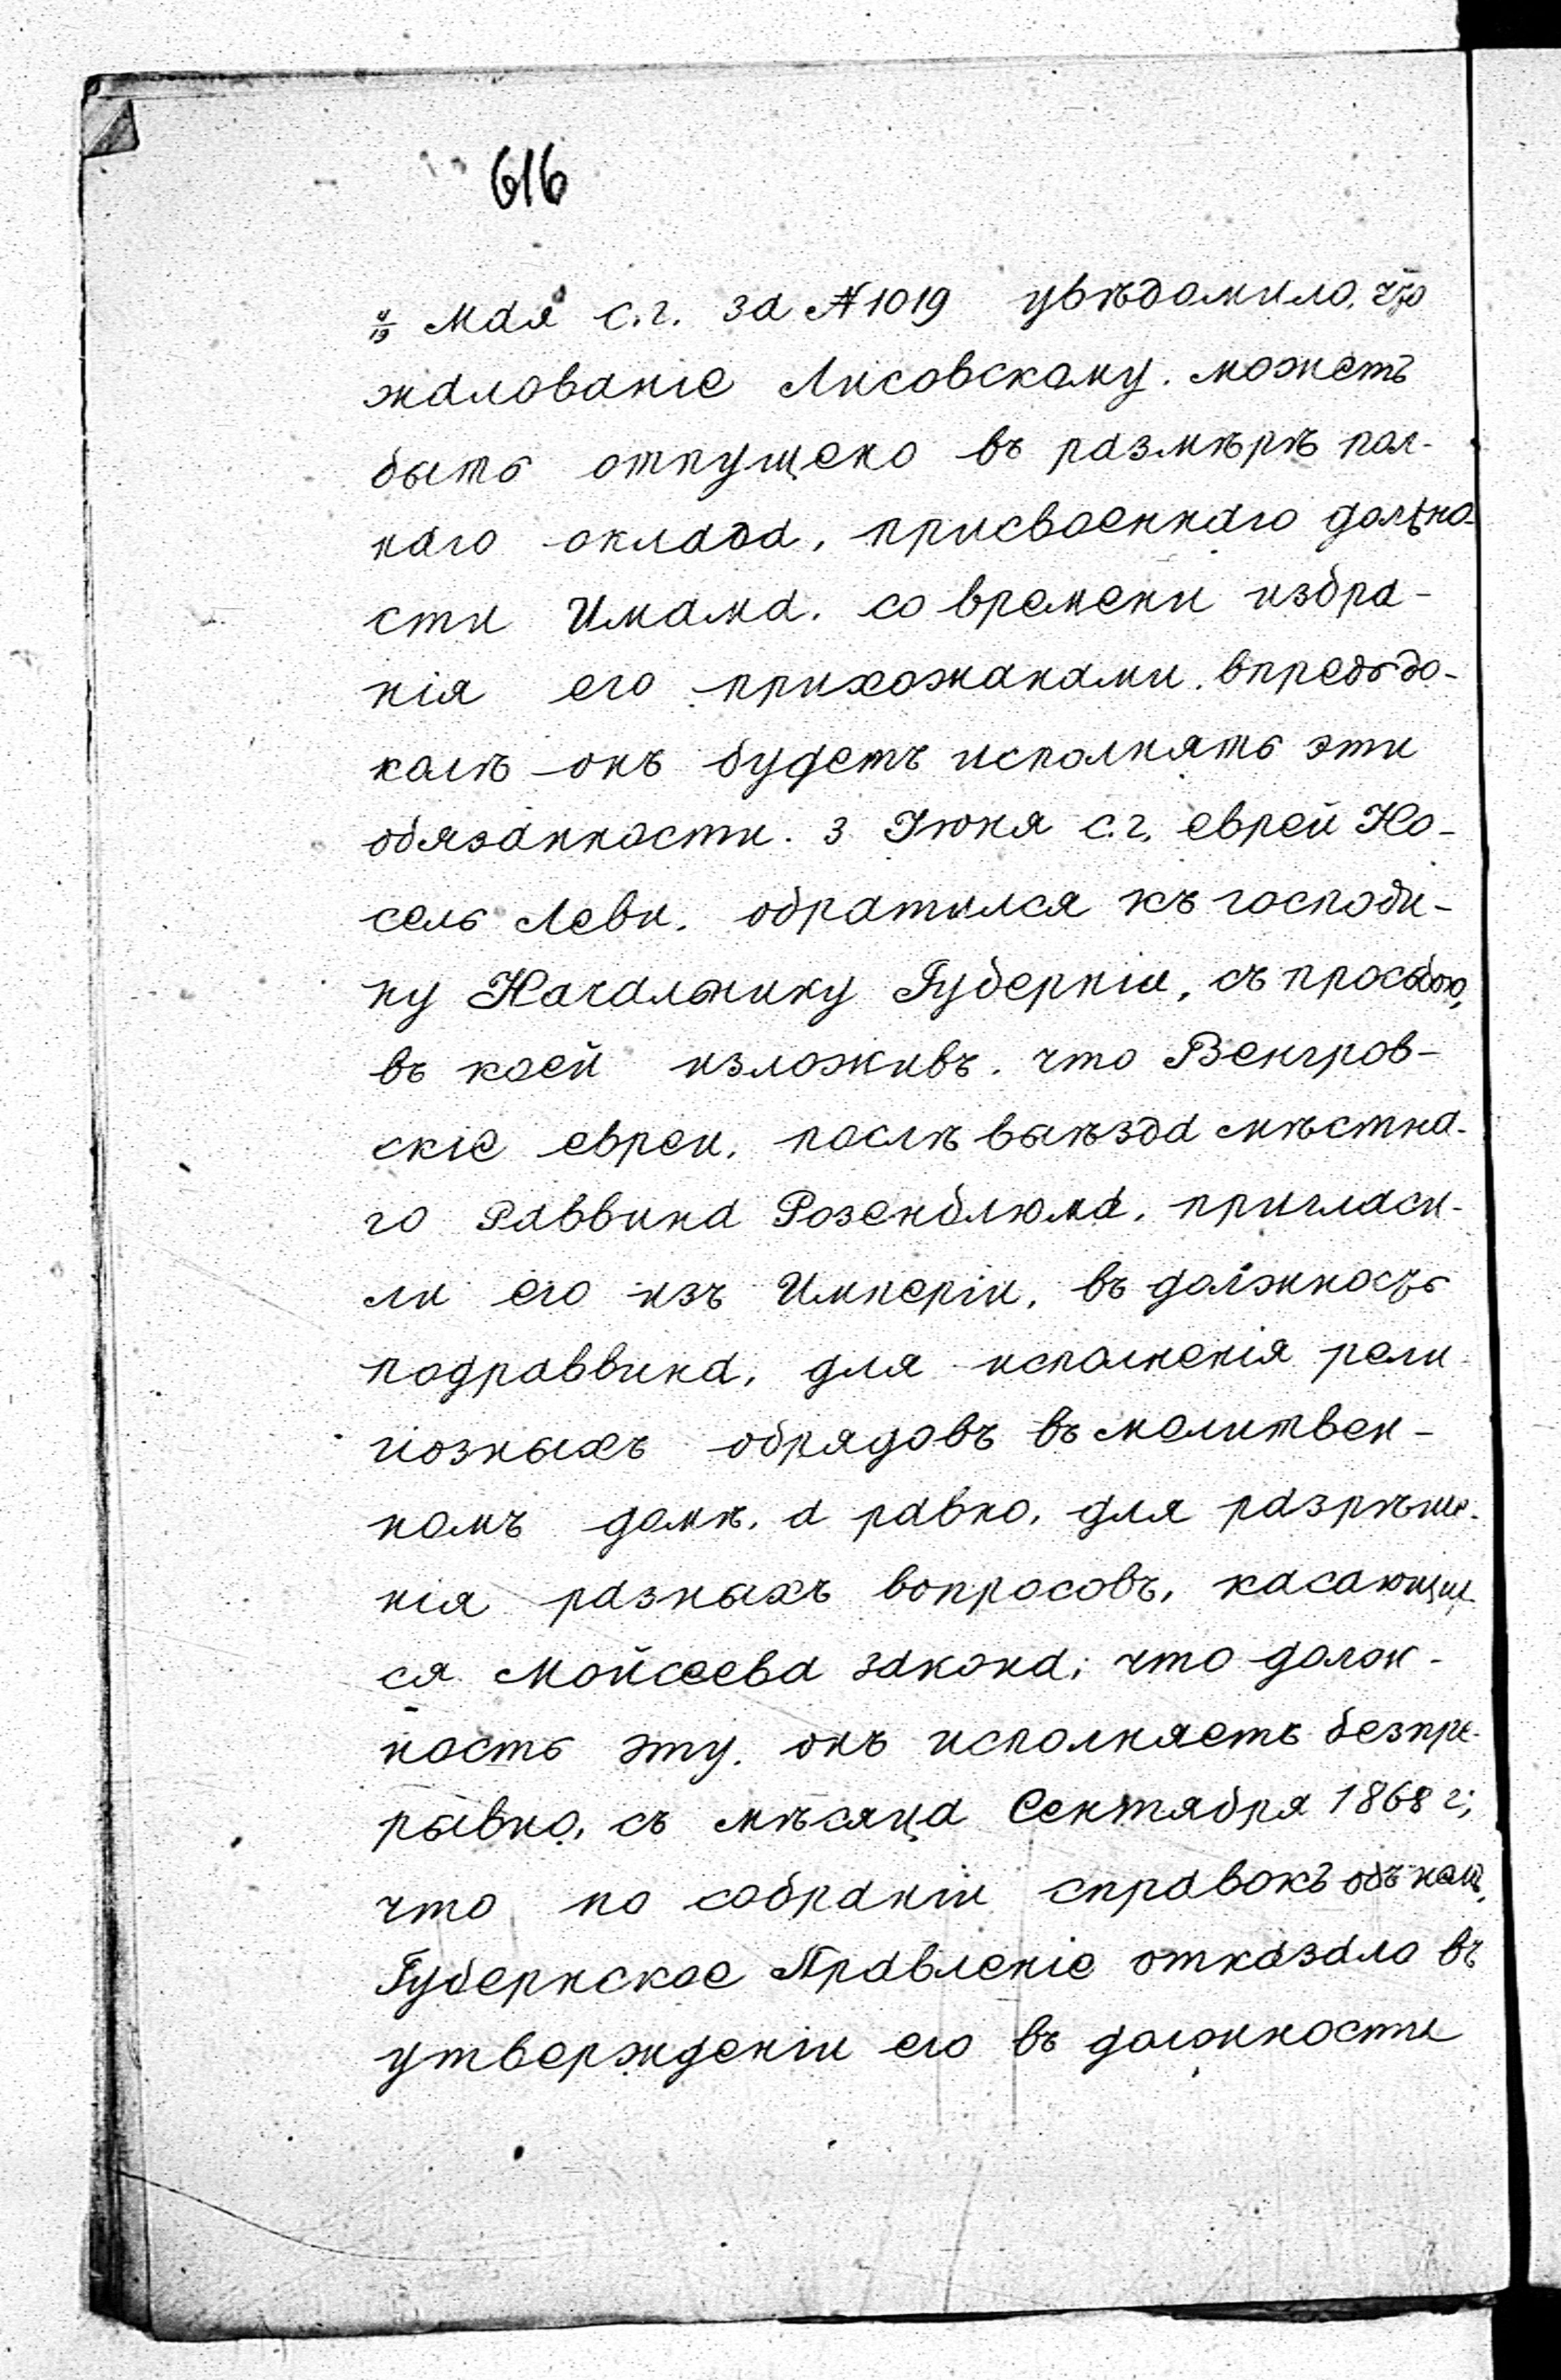 616
Мая с.г. за № 1019 увѣдомило, что
жалованіе Лисовскому, можетъ
быть отпущено въ размѣрѣ пол-
наго оклада, присвоеннаго должно-
сти Имама, со времени избра-
нія его прихожанами, впредь до-
колѣ онъ будетъ исполнять эти
обязанности. 3 Іюня с.г. еврей Но-
сель Леви, обратился къ господи-
ну Начальнику Губерніи, съ просьбою,
въ коей изложивъ, что Венгров-
скіе евреи, послѣ выѣзда мѣстна-
го Раввина Розенблюма, пригласи-
ли его изъ Имперіи, въ должность
подраввина, для исполненія рели-
гіозныхъ обрядовъ въ молитвен-
номъ домѣ, а равно, для разрѣше-
нія разныхъ вопросовъ, касающих
ся Мойсеева закона; что долж-
ность эту, онъ исполняетъ безпре-
рывно, съ мѣсяца Сентября 1868 г;
что по собраніи справокъ объ немъ,
Губернское Правленіе отказало въ
утвержденіи его въ должности